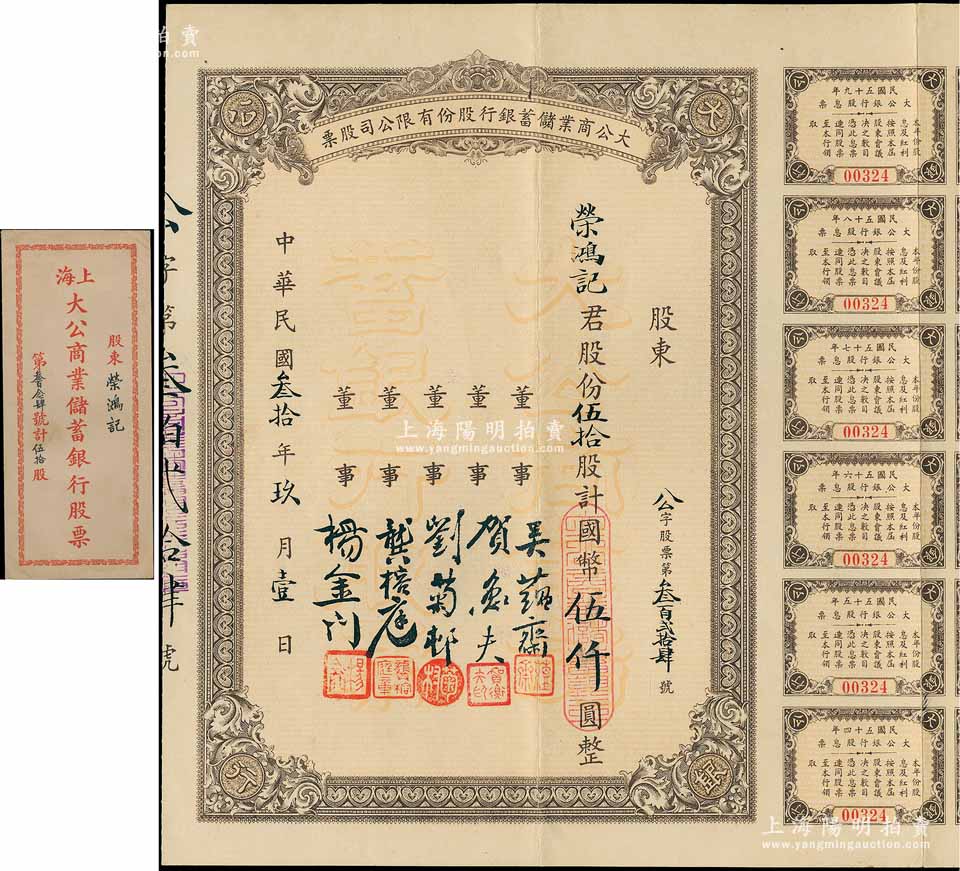 上海
大公商業儲蓄銀行股票
股東 榮鴻記
第叁弍肆號計伍拾股
大公商業儲蓄銀行股份有限公司股票
大
公
銀
行
股東
榮鴻記君股份伍拾股計國幣伍仟圓整
公字股票第叁百貳拾肆號
董事
董事 賀衡夫
董事 劉菊邨
董事 龔榕庭
董事 楊金門
中華民國叁拾年玖月壹日
公字第叁百弍拾肆號
民國五十九年
大公銀行股息票
本年份股
息及紅利
按照本屆
股東會議
決之數目
憑此息票
連同股票
至本行領
取
00324
民國五十八年
大公銀行股息票
本年份股
息及紅利
按照本屆
股東會議
決之數目
憑此息票
連同股票
至本行領
取
00324
民國五十七年
大公銀行股息票
本年份股
息及紅利
按照本屆
股東會議
決之數目
憑此息票
連同股票
至本行領
取
00324
民國五十六年
大公銀行股息票
本年份股
息及紅利
按照本屆
股東會議
決之數目
憑此息票
連同股票
至本行領
取
00324
民國五十五年
大公銀行股息票
本年份股
息及紅利
按照本屆
股東會議
決之數目
憑此息票
連同股票
至本行領
取
00324
民國五十四年
大公銀行股息票
本年份股
息及紅利
按照本屆
股東會議
決之數目
憑此息票
連同股票
至本行領
取
00324
上海陽明拍賣
www.yangmingauction.com
上海陽明拍賣
www.yangmingauction.com